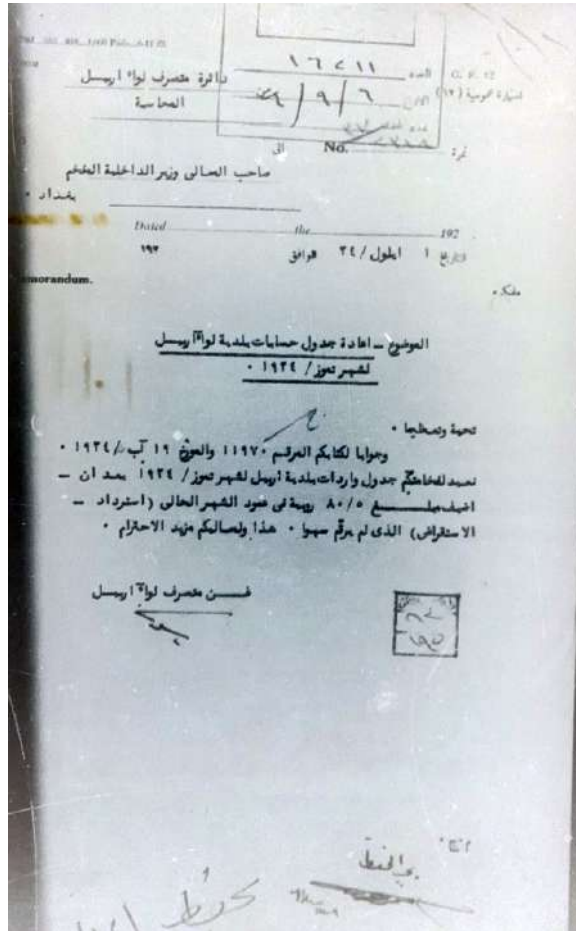 العدد ١٦٢١١
G. F. 12
دائرة متصرف لواء اربيل
التاريخ ٦/٩/
استمارة عمومية (١٢)
المحاسبة
نمرة No. الى
صاحب المعالي وزير الداخلية الفخم
بغداد ٠
Dated the 192
التاريخ ١ ايلول/٣٤ الموافق ١٩٣
Memorandum.
مفكرة ٠
الموضوع ـ اعادة جدول حسابات بلدية لواء اربيل
لشهر تموز/ ١٩٣٤ ٠
تحية وتعظيما ٠
وجوابا لكتابكم المرقم ١١٩٧٠ والمؤرخ ١٩ آب/١٩٣٤ ٠
نعيد لفخامتكم جدول واردات بلدية أربيل لشهر تموز/ ١٩٣٤ بعد ان ـ
اضيف مبلغ ٨٠/٥ روبية في عمود الشهر الحالي (استرداد ـ
الاستقراض) الذى لم يرقم سهوا ٠ هذا ولمعاليكم مزيد الاحترام ٠
عن متصرف لواء اربيل
للحفظ